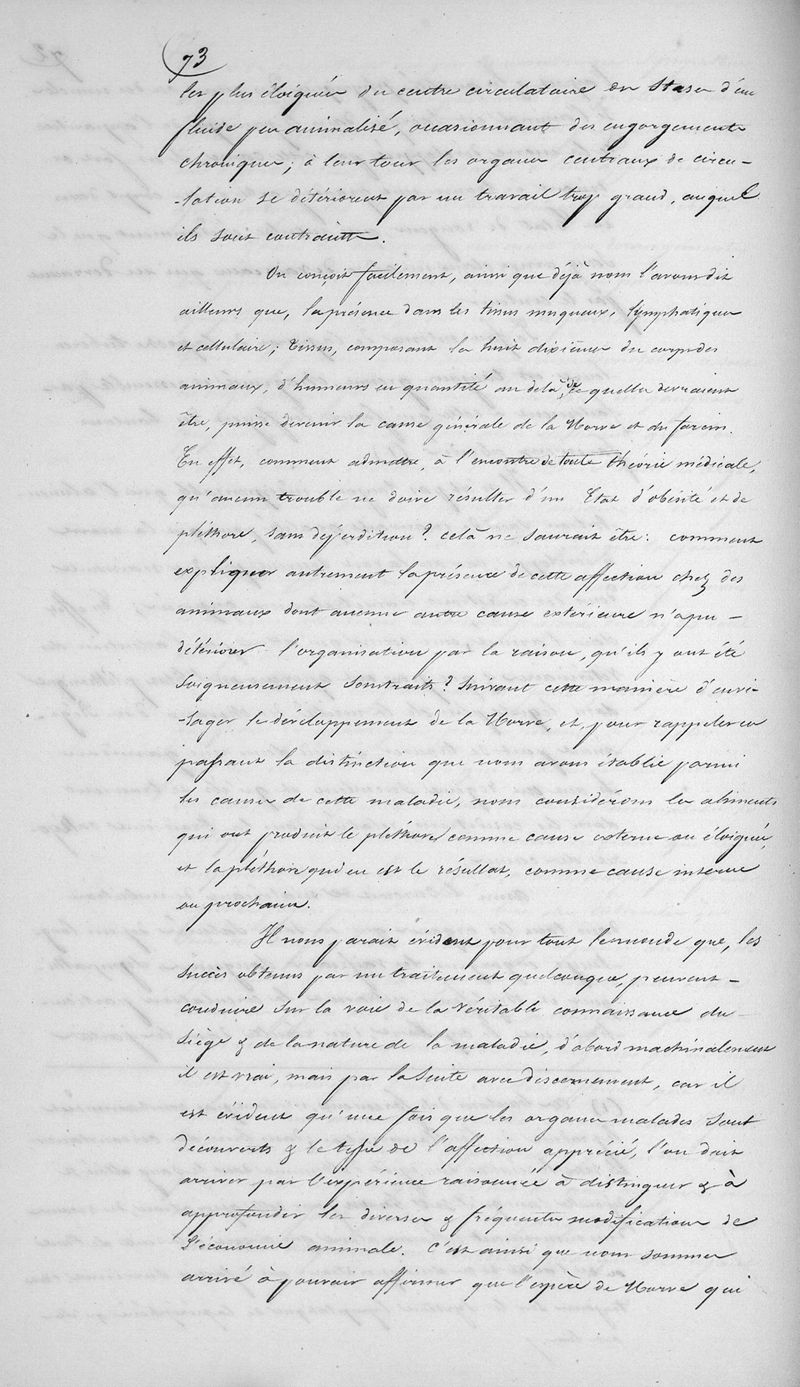 73
les plus éloignées du centre circulatoire en stases d'un
fluide peu animalisé, occasionnant des engorgements
chroniques; à leur tour les organes centraux de circu-
-lation se détériorent par un travail trop grand, auquel
ils sont contraints.
On conçoit facilement, ainsi que déjà nous l'avons dit
ailleurs que, la présence dans les tissus muqueux, lymphatiques
et cellulaire; tissus, composant les huit dixièmes du corps des
animaux, d'humeurs en quantité au delà de ce qu'elles devraient
être, puisse devenir la cause générale de la Morve et du farcin.
En effet, comment admettre, à l'encontre de toute théorie médicale,
qu'aucun trouble ne doive résulter d'un Etat d'obésité et de
pléthore, sans déperdition? celà ne saurait être: comment
expliquer autrement la présence de cette affection chez des
animaux dont aucune autre cause extérieure n'a pu -
détériorer l'organisation par la raison, qu'ils y ont été
soigneusement soustraits? Suivant cette manière d'envi-
-sager le développement de la Morve, et, pour rappeler en
passant la distinction que nous avons établie parmi
les causes de cette maladie, nous considérons les aliments
qui ont produit la pléthore comme cause externe ou éloignée,
et la pléthore qui en est le résultat, comme cause interne
ou prochaine.
Il nous parait évident pour tout le monde que, les
succès obtenus par un traitement quelconque, peuvent -
conduire sur la voie de la véritable connaissance du
siège & de la nature de la maladie, d'abord machinalement
il est vrai, mais par la suite avec discernement, car il
est évident qu'une fois que les organes malades sont
découverts & le type de l'affection apprécié, l'on doit
arriver par l'expérience raisonnée à distinguer & à
approfondir les diverses & fréquentes modifications de
l'économie animale. C'est ainsi que nous sommes
arrivé à pouvoir affirmer que l'espèce de Morve qui